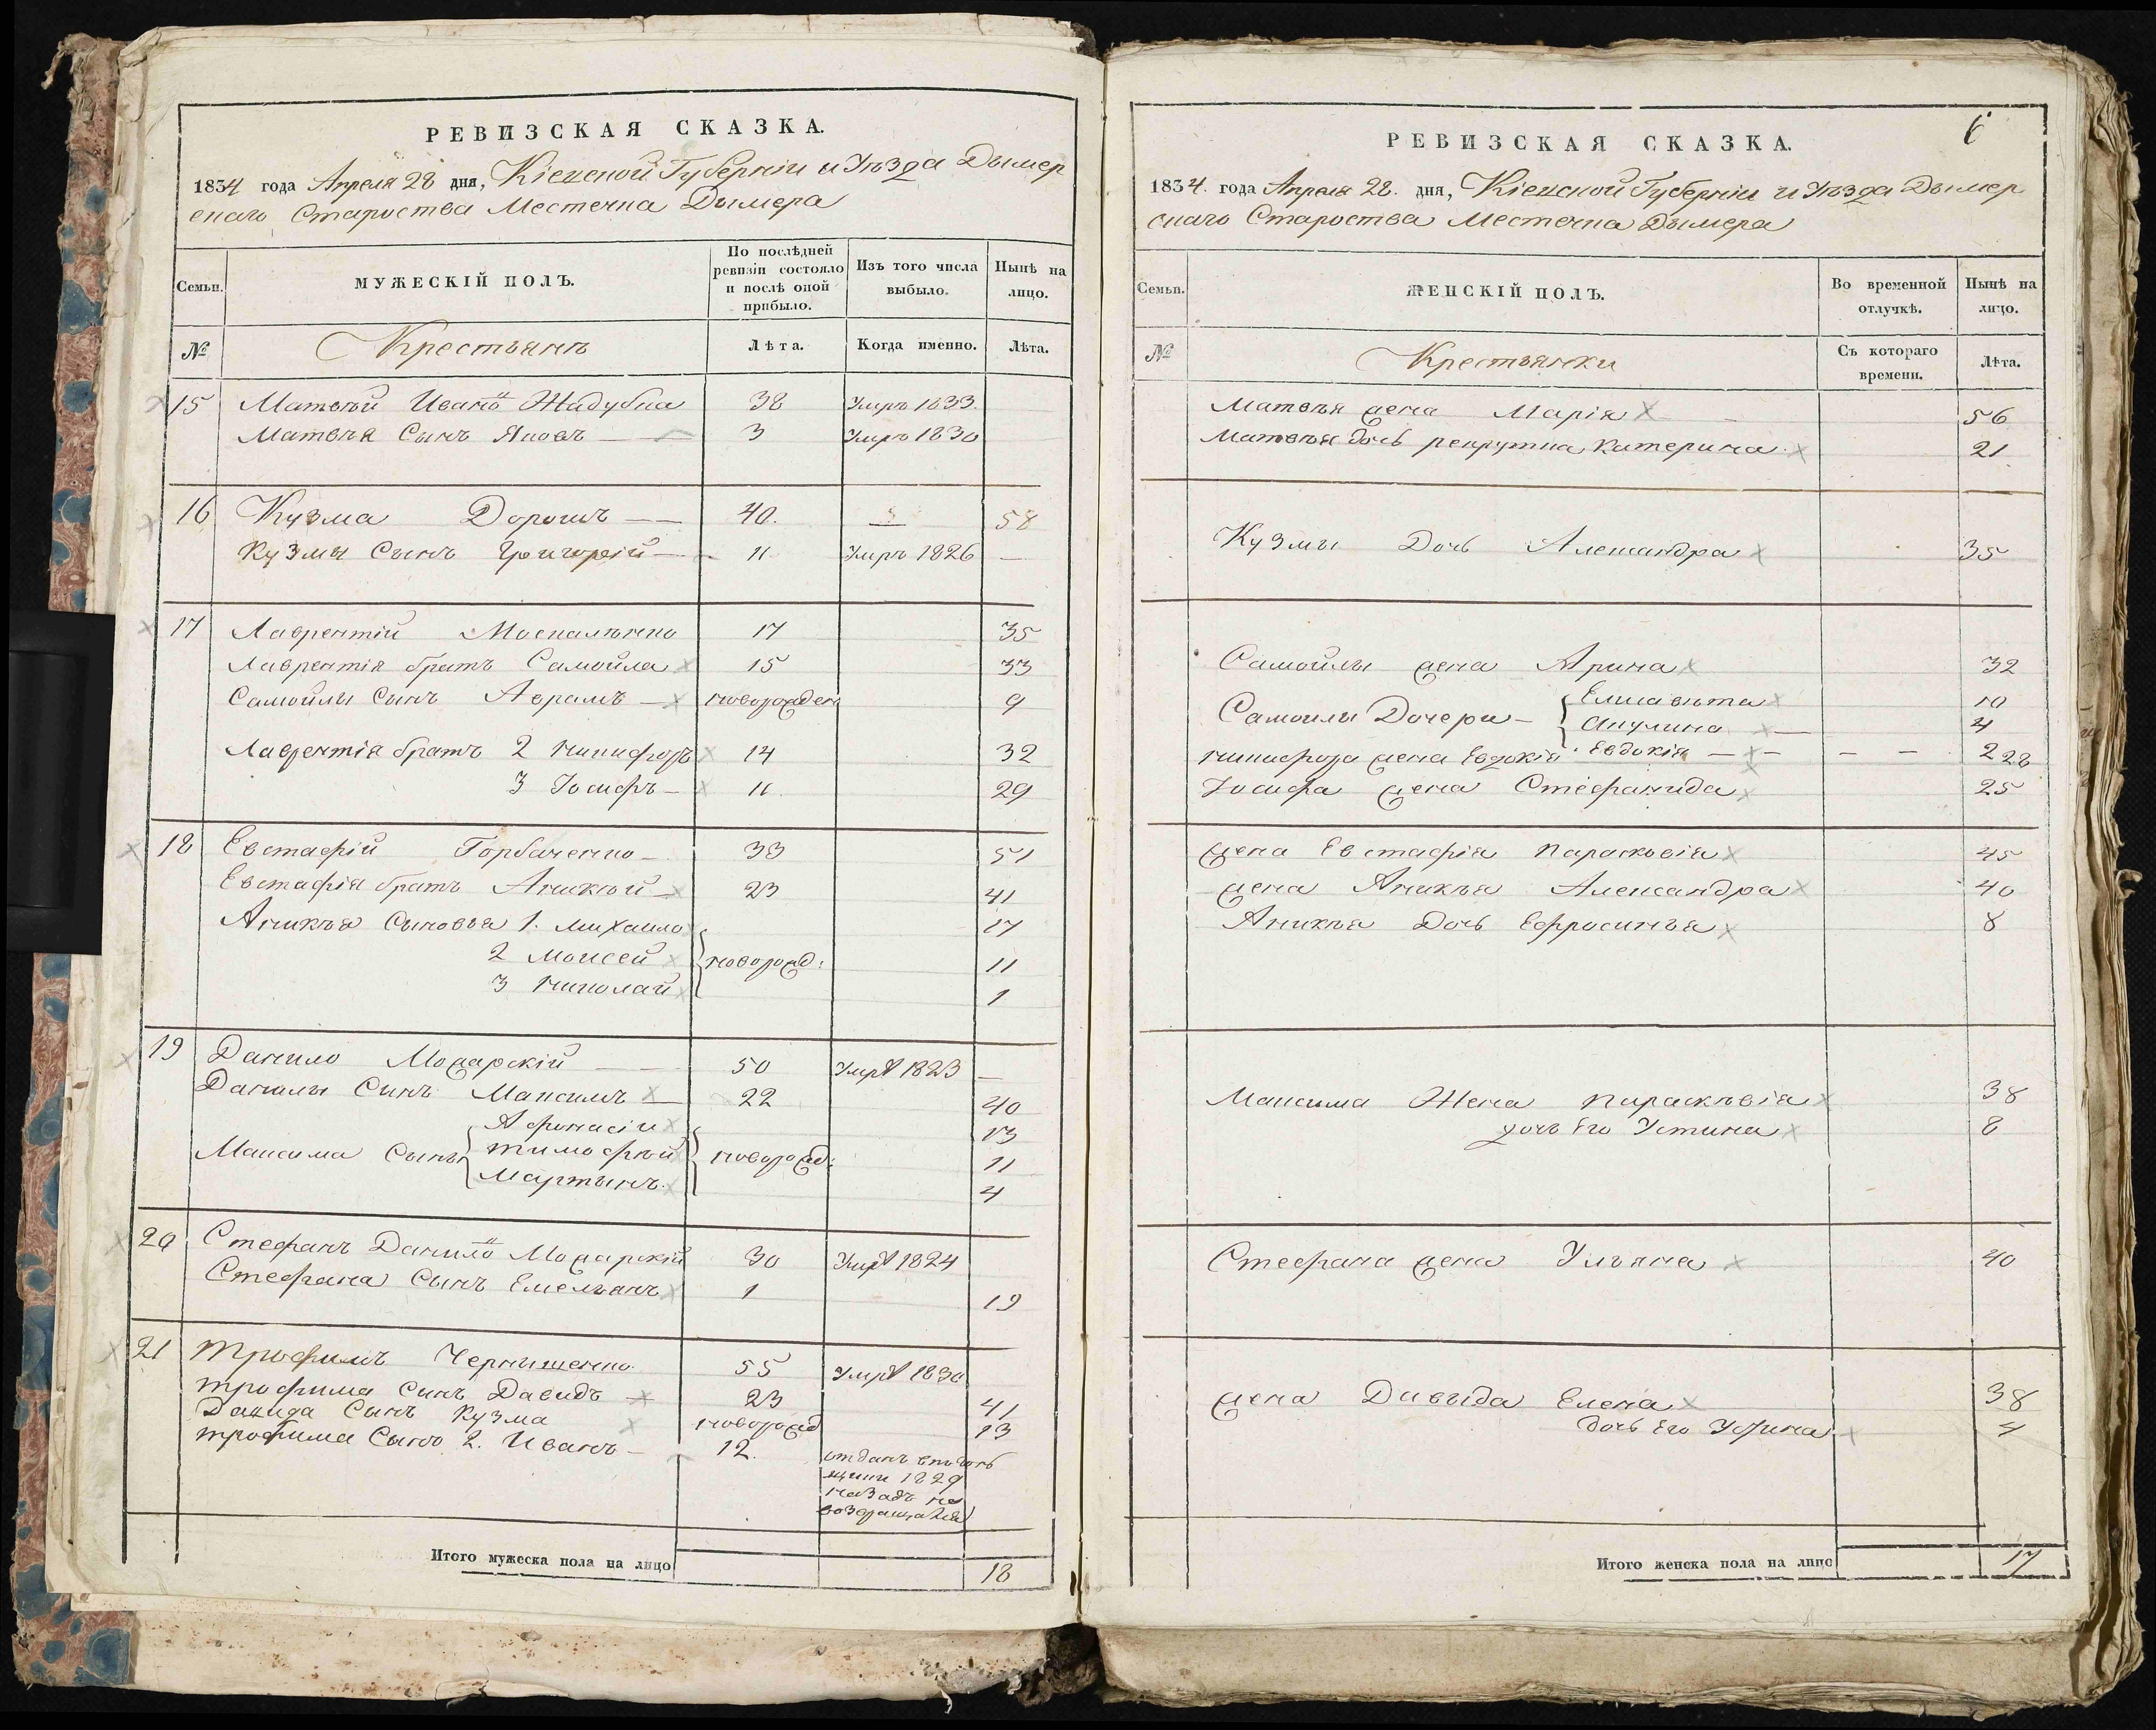 РЕВИЗСКАЯ СКАЗКА.
1834 года Апреля 28 дня, Кіевской Губерніи и Уѣзда Дымер
скаго Староства Местечка Дымера
Семьи.
МУЖЕСКІЙ ПОЛЪ.
По послѣдней ревизіи состояло и послѣ оной прибыло.
Изъ того числа выбыло.
Нынѣ на лицо.
№
Крестьянъ
Лѣта.
Когда именно.
Лѣта.
15 Матвѣй Ивановъ 38 Умръ 1833.
Матвѣя Сынъ Яковъ — 3 Умръ 1830
16 Кузма Дорошъ — 40. 58
Кузмы Сынъ Григорій — 11 Умръ 1826 —
17 Лаврентій Москаленко 17 35
Лаврентія братъ Самойла 15 33
Самойлы Сынъ Аврамъ — новорожден 9
Лаврентія братъ 2 Никифоръ 14 32
3 Іосифъ — 11. 29
18 Евстафій Горбаченко — 33 51
Евстафія братъ Аникѣй — 23 41
Аникѣя Сыновья 1. Михаило 17
2 Моисей новорожд: 11
3 Николай 1
19 Данило Можарскій — 50 Умръ 1823 —
Данилы Сынъ Максимъ — 22 40
Афанасій 13
Максима Сынъ Тимофѣй новорожд: 11
Мартынъ. 4
20 Стефанъ Данилов Можарскій 30 Умръ 1824
Стефана Сынъ Емельянъ 1 19
21 Трофимъ Чернышенко 55 Умръ 1830
Трофима Сынъ Давидъ 23 41
Давида Сынъ Кузма новорожд 13
Трофима Сынъ 2. Иванъ — 12.
отданъ
1829
назадъ не
Итого мужеска пола на лицо 18
6
РЕВИЗСКАЯ СКАЗКА.
1834. года Апреля 28. дня, Кіевской Губерніи и Уѣзда Дымер
скаго Староства Местечка Дымера
Семьи.
ЖЕНСКІЙ ПОЛЪ.
Во временной отлучкѣ.
Нынѣ на лицо.
№
Крестьянки
Съ котораго времени.
Лѣта.
Матвѣя жена Марія 56
Матвѣя дочь рекрутка Катерина. 21
Кузмы Дочь Александра 35
Самойлы жена Арина 32
Елисавѣта 10
Самоилы Дочери — Акулина — 4
Евдокія — — — 2
Никифора жена Евдокія 28
Іосифа жена Стефанида 25
жена Евстафія Парасковія 45
жена Аникѣя Александра 40
Аникѣя Дочь Ефросинья 8
Максима Жена Параскѣвія 38
дочь Его Устина 8
Стефана жена Ульяна 40
жена Давыда Елена 38
дочь Его 4
Итого женска пола на лицо 17